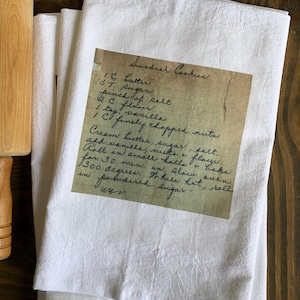 Swedish Cookies
1 C butter
3 T sugar
pinch of salt
2 C flour
1 tsp. vanilla
1 C finely chopped nuts
Cream butter, sugar, salt
add vanilla, nuts & flour.
Roll in small balls & bake
for 30 min. in slow oven
300 degrees. While hot, roll
in powdered sugar.